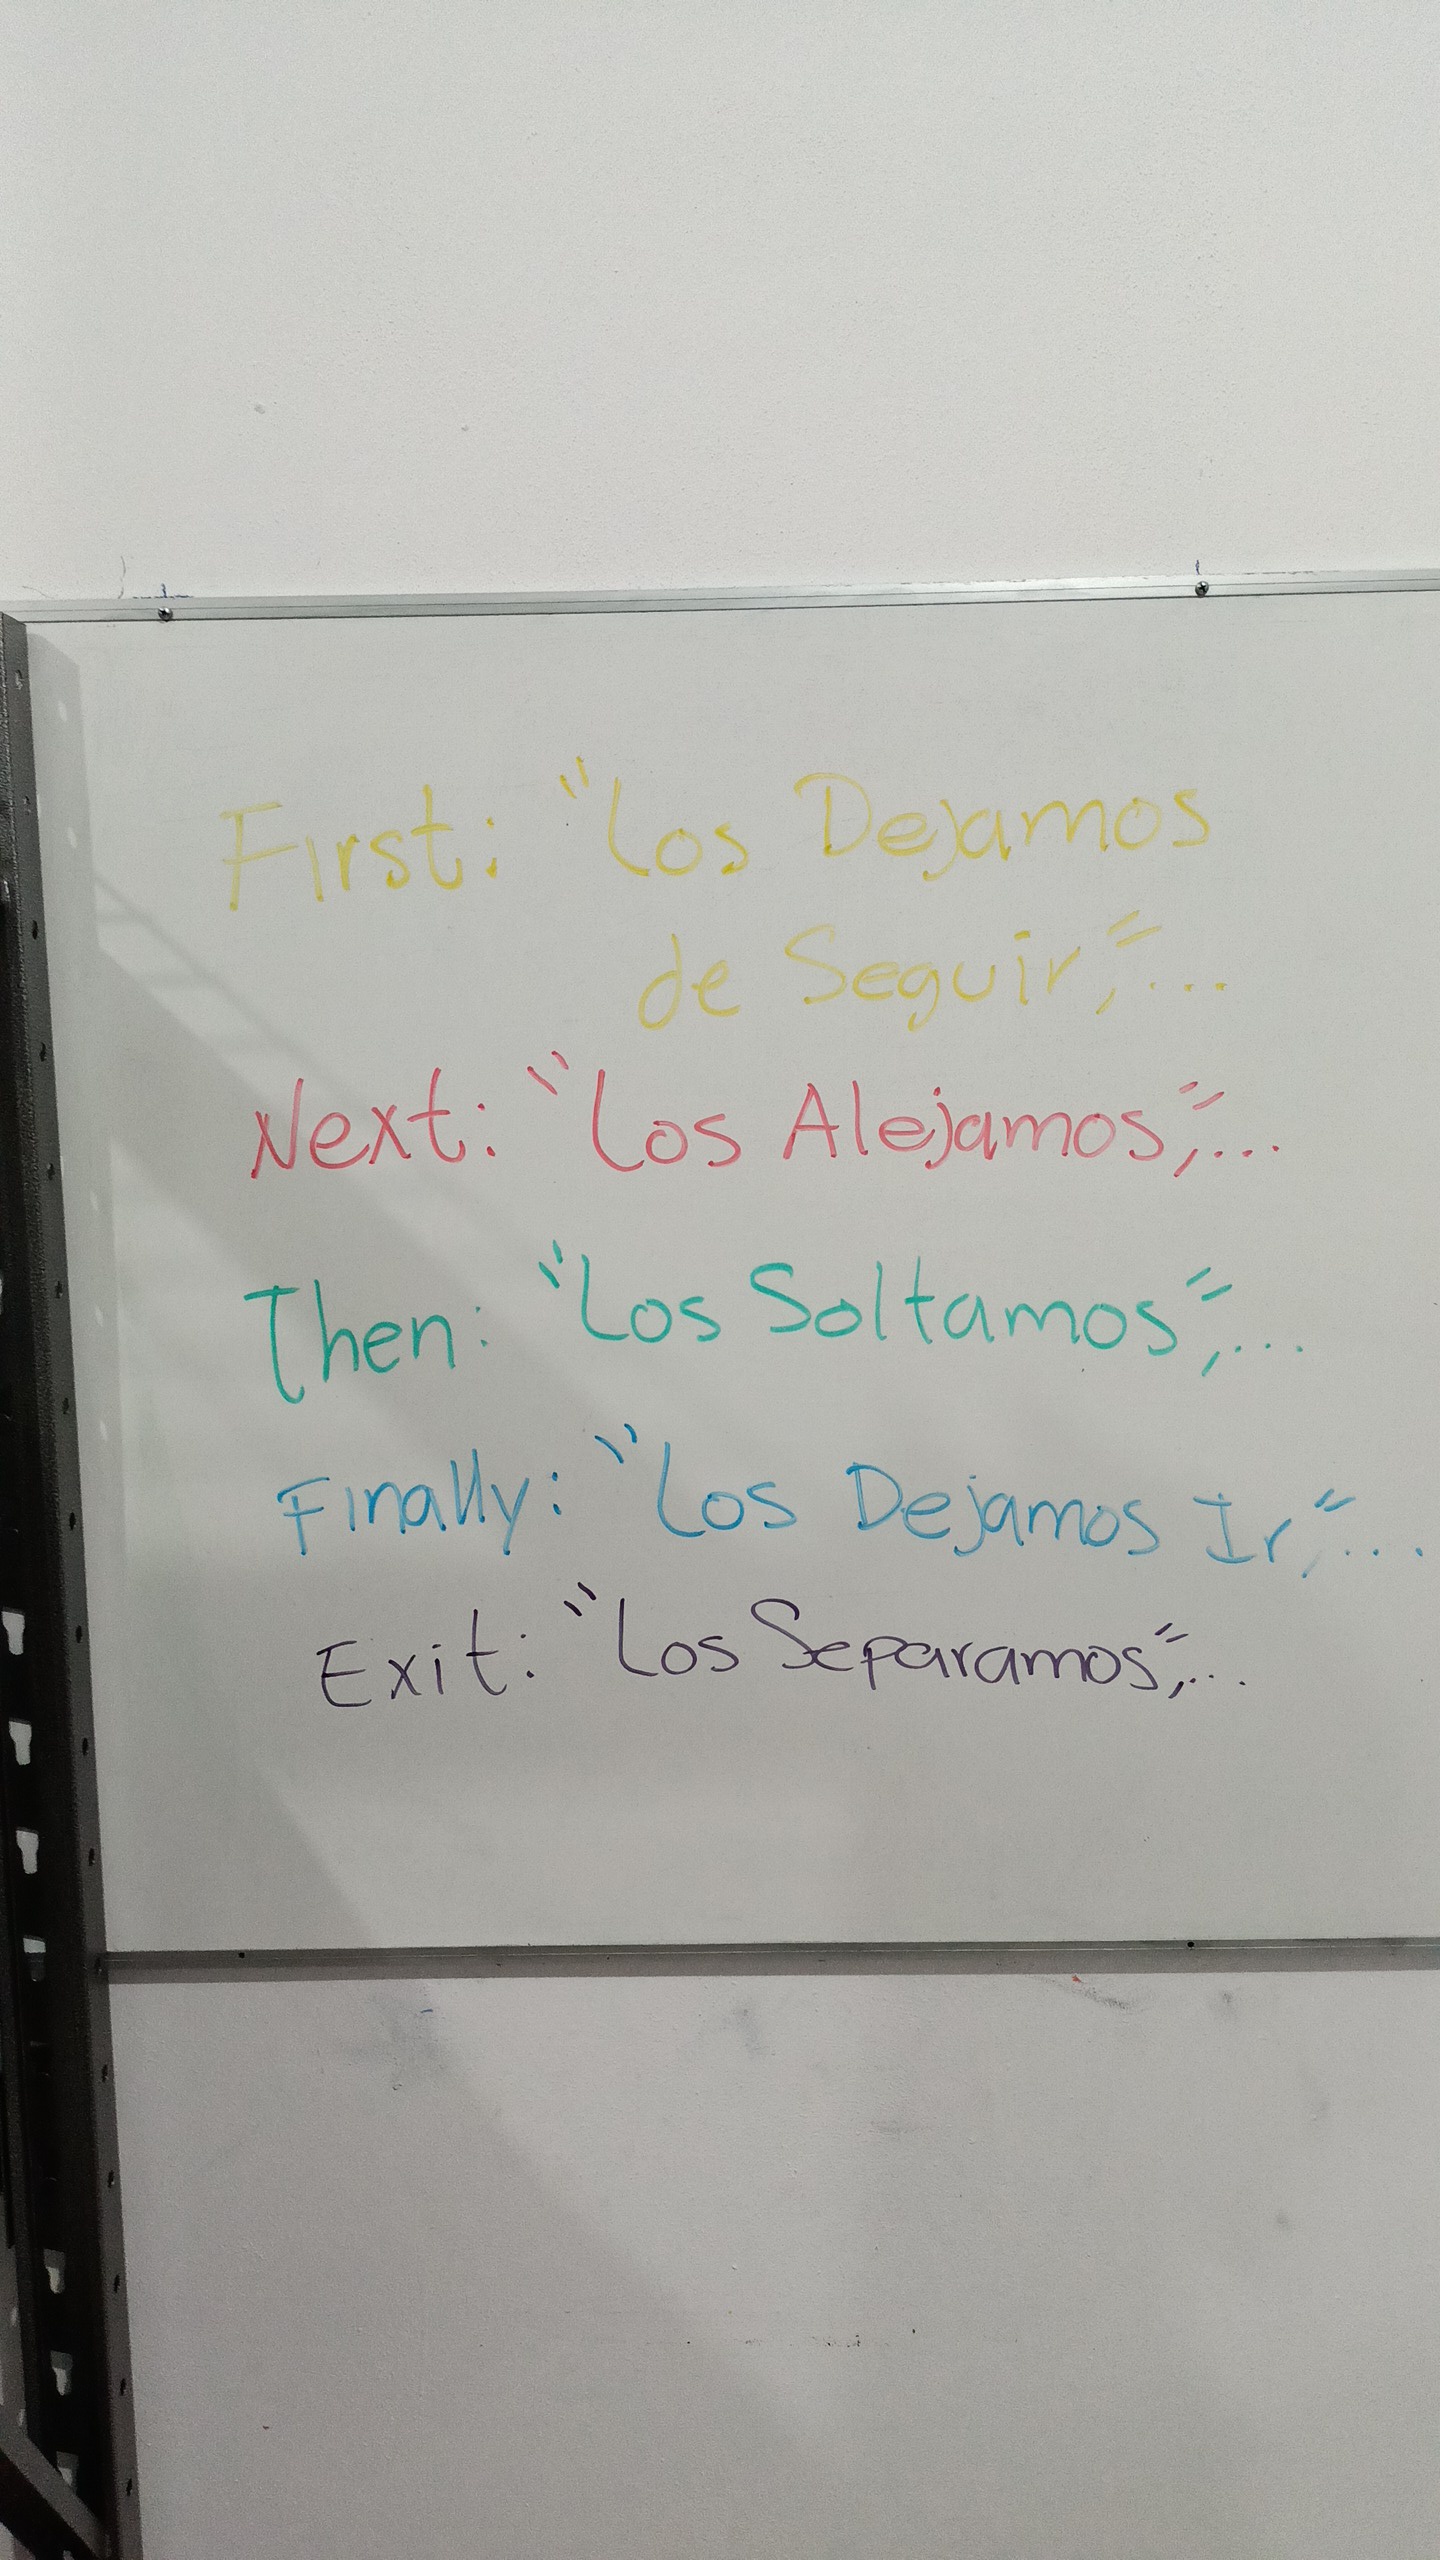 First: "Los Dejamos
de Seguir,"...
Next: "Los Alejamos",...
Then: "Los Soltamos",...
Finally: "Los Dejamos Ir,"...
Exit: "Los Separamos",...